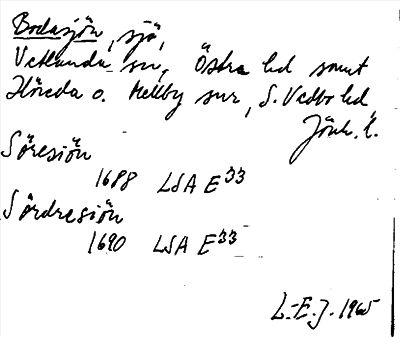 Bodasjön, sjö,
Vetlanda sn, Östra hd samt
Höreda o. Mellby snr, S. Vedbo hd
Jönk. l.
Söresiön
1688 LSA E33
Sördresiön
1690 LSA E33
L.-E. J. 1965